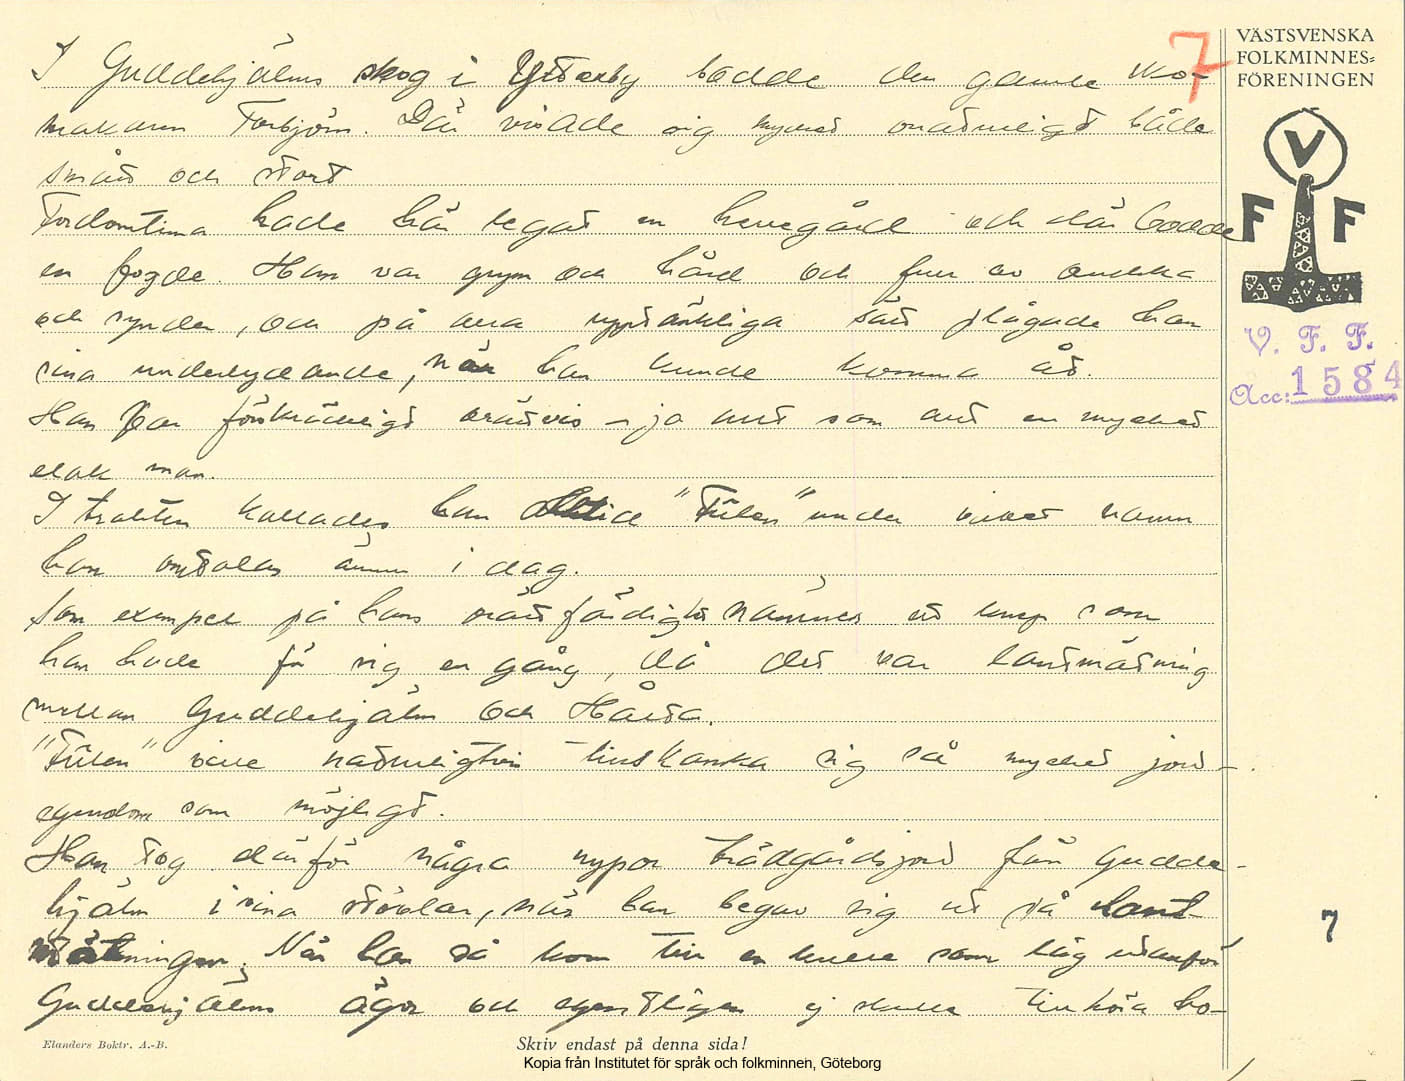 7
VÄSTSVENSKA
FOLKMINNES-
FÖRENINGEN
V
F F
V. F. F.
Acc: 1584
I Guddehjälms skog i Ytterby bodde den gamle sko-
makaren Torbjörn. Där visade sig mycket onaturligt både
smått och stort
Fordomtima hade här legat en herregård och där bodde
en fogde. Han var grym och hård och full av ondska
och synder, och på alla upptänkliga sätt plågade han
sina underlydande, när han kunde komma åt.
Han var förskräckligt orättvis – ja rent som ant en mycket
elak man.
I trakten kallades han alltid "Fülen" under vilket namn
han omtalas ännu i dag.
Som exempel på hans orättfärdighet nämnes ett knep som
han hade för sig en gång, då det var lantmätning
mellan Guddehjälm och Hålta.
"Fülen" ville naturligtvis tillskansa sig så mycket jord-
egendom som möjligt.
Han tog därför några nypor trädgårdsjord från Gudde-
hjälm i sina stövlar, när han begav sig ut på lant-
mätningen. När han så kom till en kulle som låg utanför
Guddehjälms ägor och egentligen ej skulle tillhöra ho-
7
Elanders Boktr. A.-B.
Skriv endast på denna sida!
Kopia från Institutet för språk och folkminnen, Göteborg